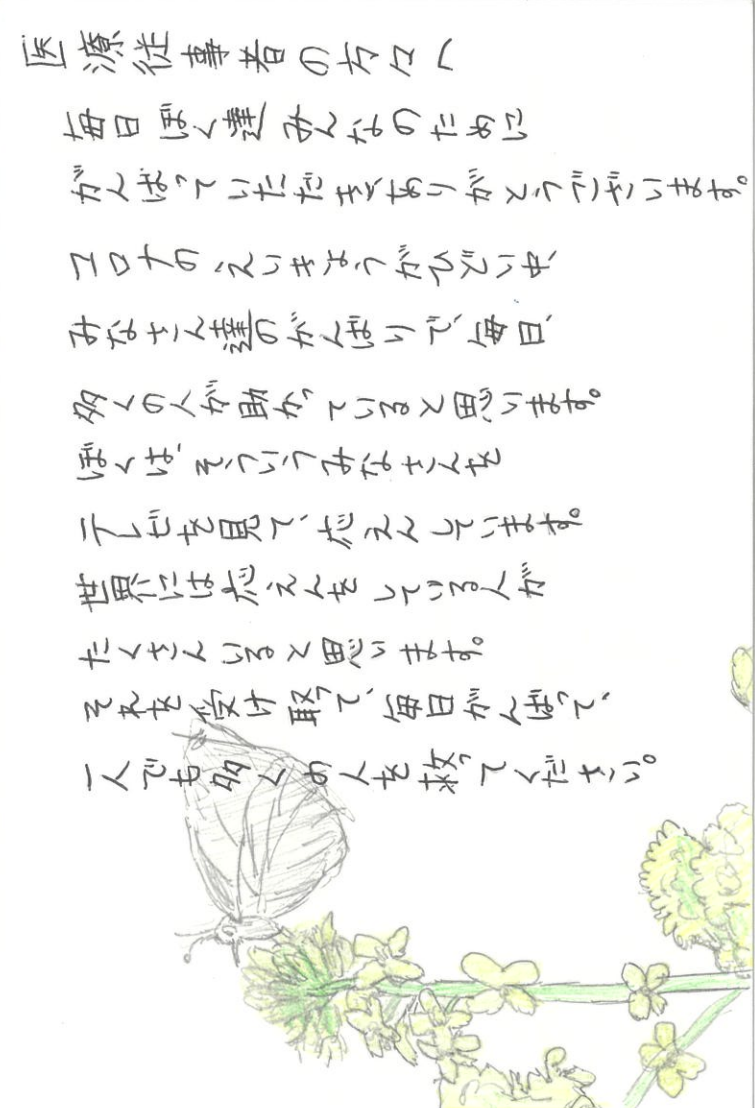 医療従事者の方々へ
毎日ぼく達みんなのために
がんばっていただきありがとうございます。
コロナのえいきょうがひどい中、
みなさん達のがんばりで、毎日、
多くの人が助かっていると思います。
ぼくは、そういうみなさんを
テレビを見て、応えんしています。
世界には応えんをしている人が
たくさんいると思います。
それを受け取って、毎日がんばって、
一人でも多くの人を救ってください。